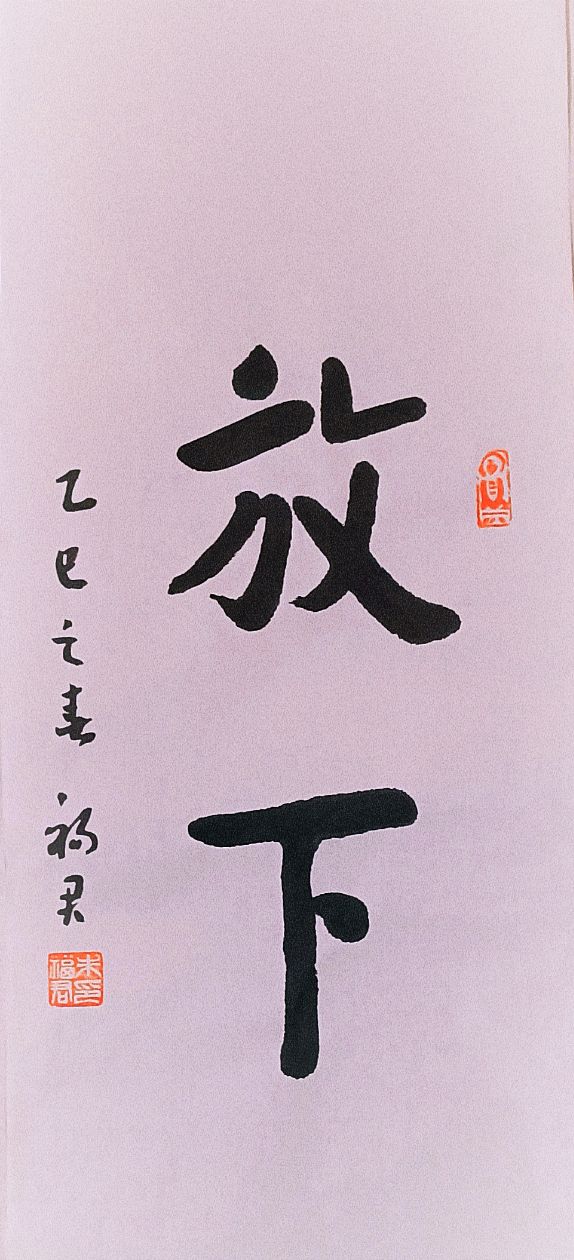 放下
乙巳之春 福君
朱福君印